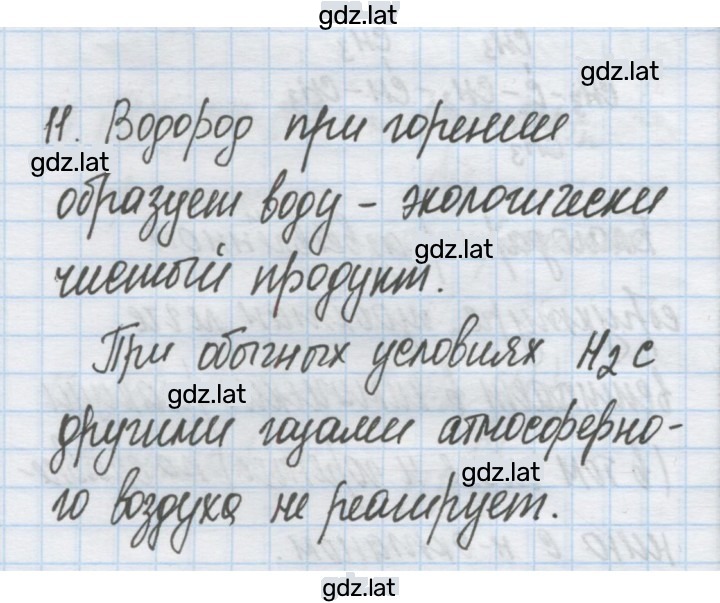 gdz.lat
gdz.lat
11. Водород при горении
gdz.lat
образует воду - экологически
gdz.lat
чистый продукт.
При обычных условиях H2 с
gdz.lat
другими газами атмосферно-
gdz.lat
го воздуха не реагирует.
gdz.lat